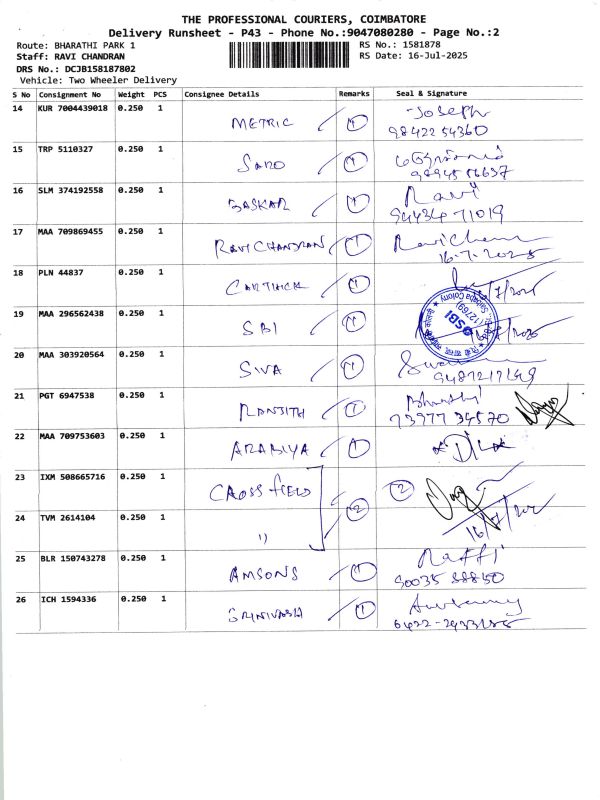 THE PROFESSIONAL COURIERS, COIMBATORE
Delivery Runsheet - P43 - Phone No.:9047080280 - Page No.:2
Route: BHARATHI PARK 1
RS No.: 1581878
Staff: RAVI CHANDRAN
RS Date: 16-Jul-2025
DRS No.: DCJB158187802
Vehicle: Two Wheeler Delivery
S No Consignment No Weight PCS Consignee Details Remarks Seal & Signature
14 KUR 7004439018 0.250 1 METRIC 1 Joseph
98422 54360
15 TRP 5110327 0.250 1 SARO 1
16 SLM 374192558 0.250 1 BASKAR 1 Ravi
94434 71019
17 MAA 709869455 0.250 1 RAVICHANDRAN 1
16-7-2025
18 PLN 44837 0.250 1 CARTHICK 1
19 MAA 296562438 0.250 1 SBI 1
SBI
20 MAA 303920564 0.250 1 SIVA 1
21 PGT 6947538 0.250 1 RANJITH 1 Bharathi
73977 34570
22 MAA 709753603 0.250 1 ARABIYA 1
23 IXM 508665716 0.250 1 CROSS FIELD 2 2
24 TVM 2614104 0.250 1 "
25 BLR 150743278 0.250 1 AMSONS 1 Raffi
90035 88850
26 ICH 1594336 0.250 1 SRINIVASH 1